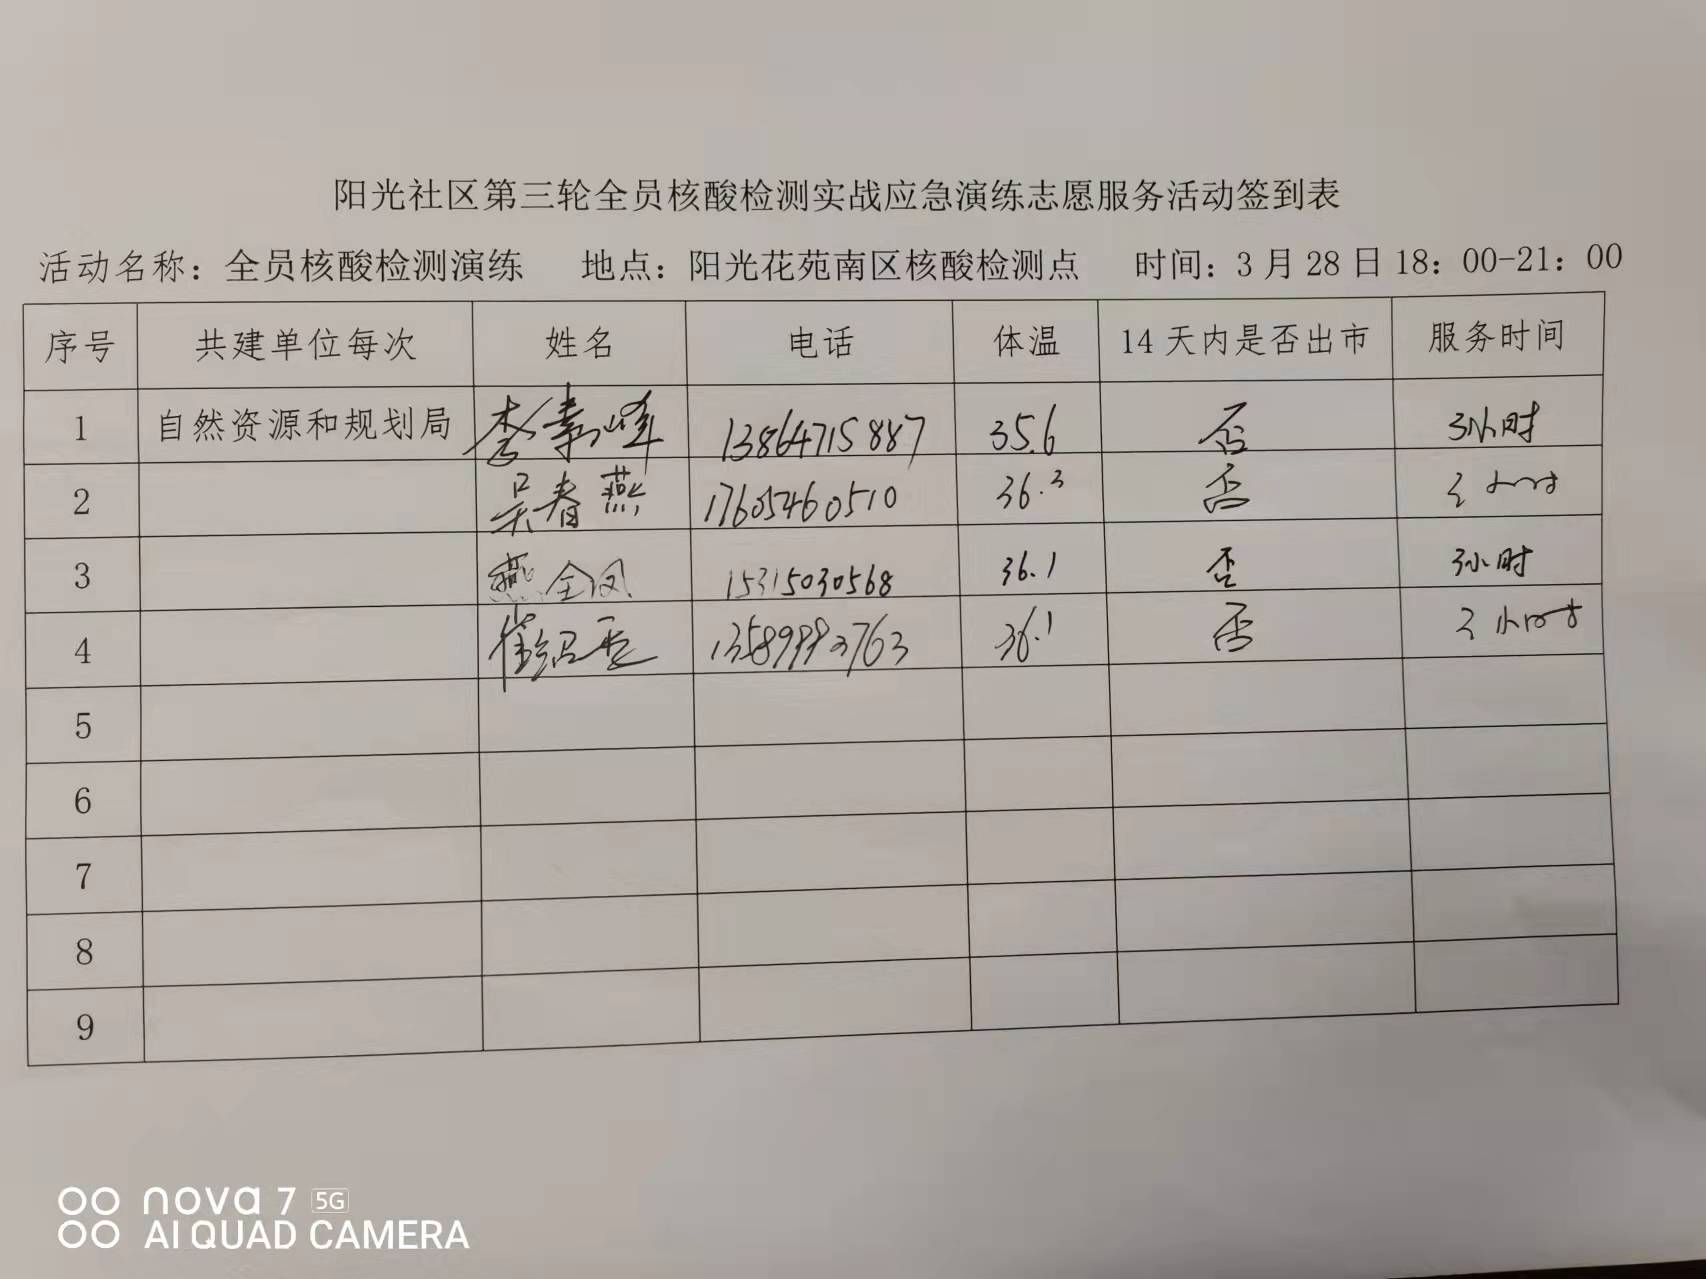 阳光社区第三轮全员核酸检测实战应急演练志愿服务活动签到表
活动名称：全员核酸检测演练 地点：阳光花苑南区核酸检测点 时间：3月28日18：00-21：00
序号 共建单位每次 姓名 电话 体温 14天内是否出市 服务时间
1 自然资源和规划局 李素峰 13864715887 35.6 否 3小时
2 吴春燕 17605460510 36.3 否 3小时
3 燕全凤 15315030568 36.1 否 3小时
4 崔 36.1 否 3小时
5
6
7
8
9
nova 7 5G
AI QUAD CAMERA